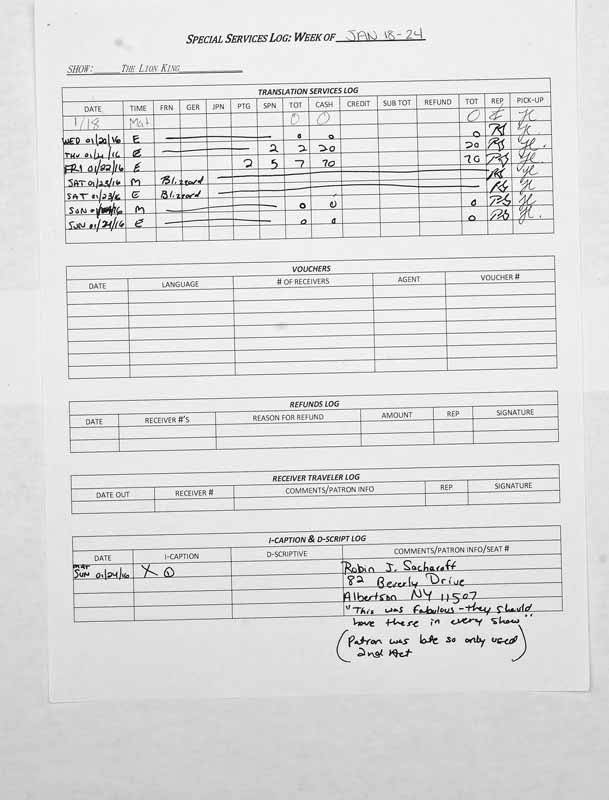 SPECIAL SERVICES LOG: WEEK OF JAN 18-24
SHOW: THE LION KING
TRANSLATION SERVICES LOG
DATE TIME FRN GER JPN PTG SPN TOT CASH CREDIT SUB TOT REFUND TOT REP PICK-UP
1/18 Mat 0 0 0
WED 01/20/16 E 0 0 0 RS
THU 01/21/16 E 2 2 20 20 RS
FRI 01/22/16 E 2 5 7 70 70 RS
SAT 01/23/16 M Blizzard RS
SAT 01/23/16 E Blizzard RS
SUN 01/24/16 M 0 0 0 RS
SUN 01/24/16 E 0 0 0 RS
VOUCHERS
DATE LANGUAGE # OF RECEIVERS AGENT VOUCHER #
REFUNDS LOG
DATE RECEIVER #'S REASON FOR REFUND AMOUNT REP SIGNATURE
RECEIVER TRAVELER LOG
DATE OUT RECEIVER # COMMENTS/PATRON INFO REP SIGNATURE
I-CAPTION & D-SCRIPT LOG
DATE I-CAPTION D-SCRIPTIVE COMMENTS/PATRON INFO/SEAT #
MAT
SUN 01/24/16 X 1 Robin J. Sacharoff
82 Beverly Drive
Albertson NY 11507
"This was fabulous - they should
have these in every show"
(Patron was late so only used
2nd Act)